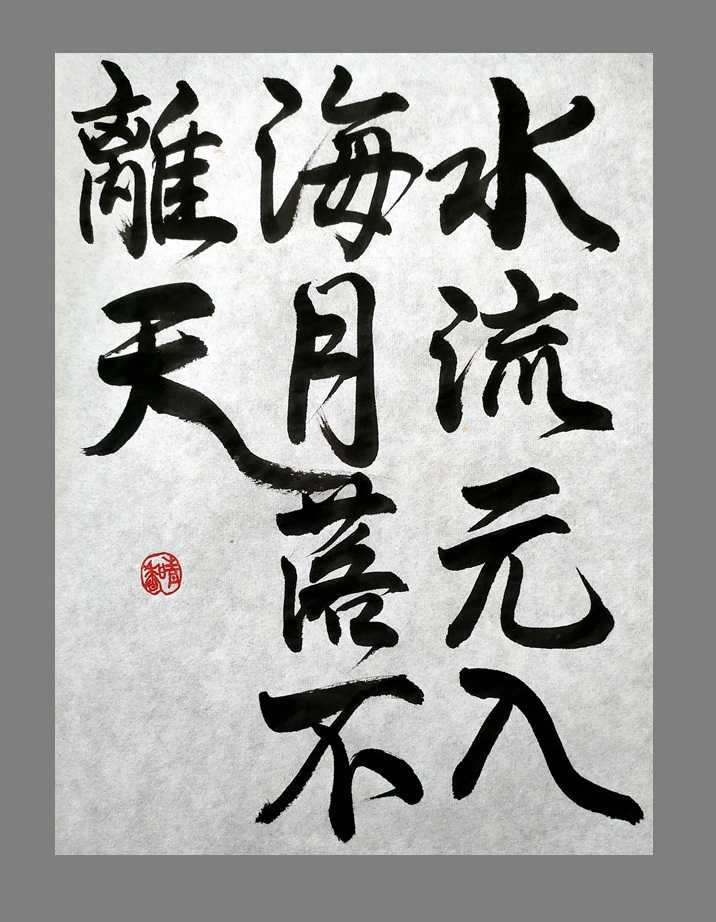 水流元入
海月落不
離天
晴香